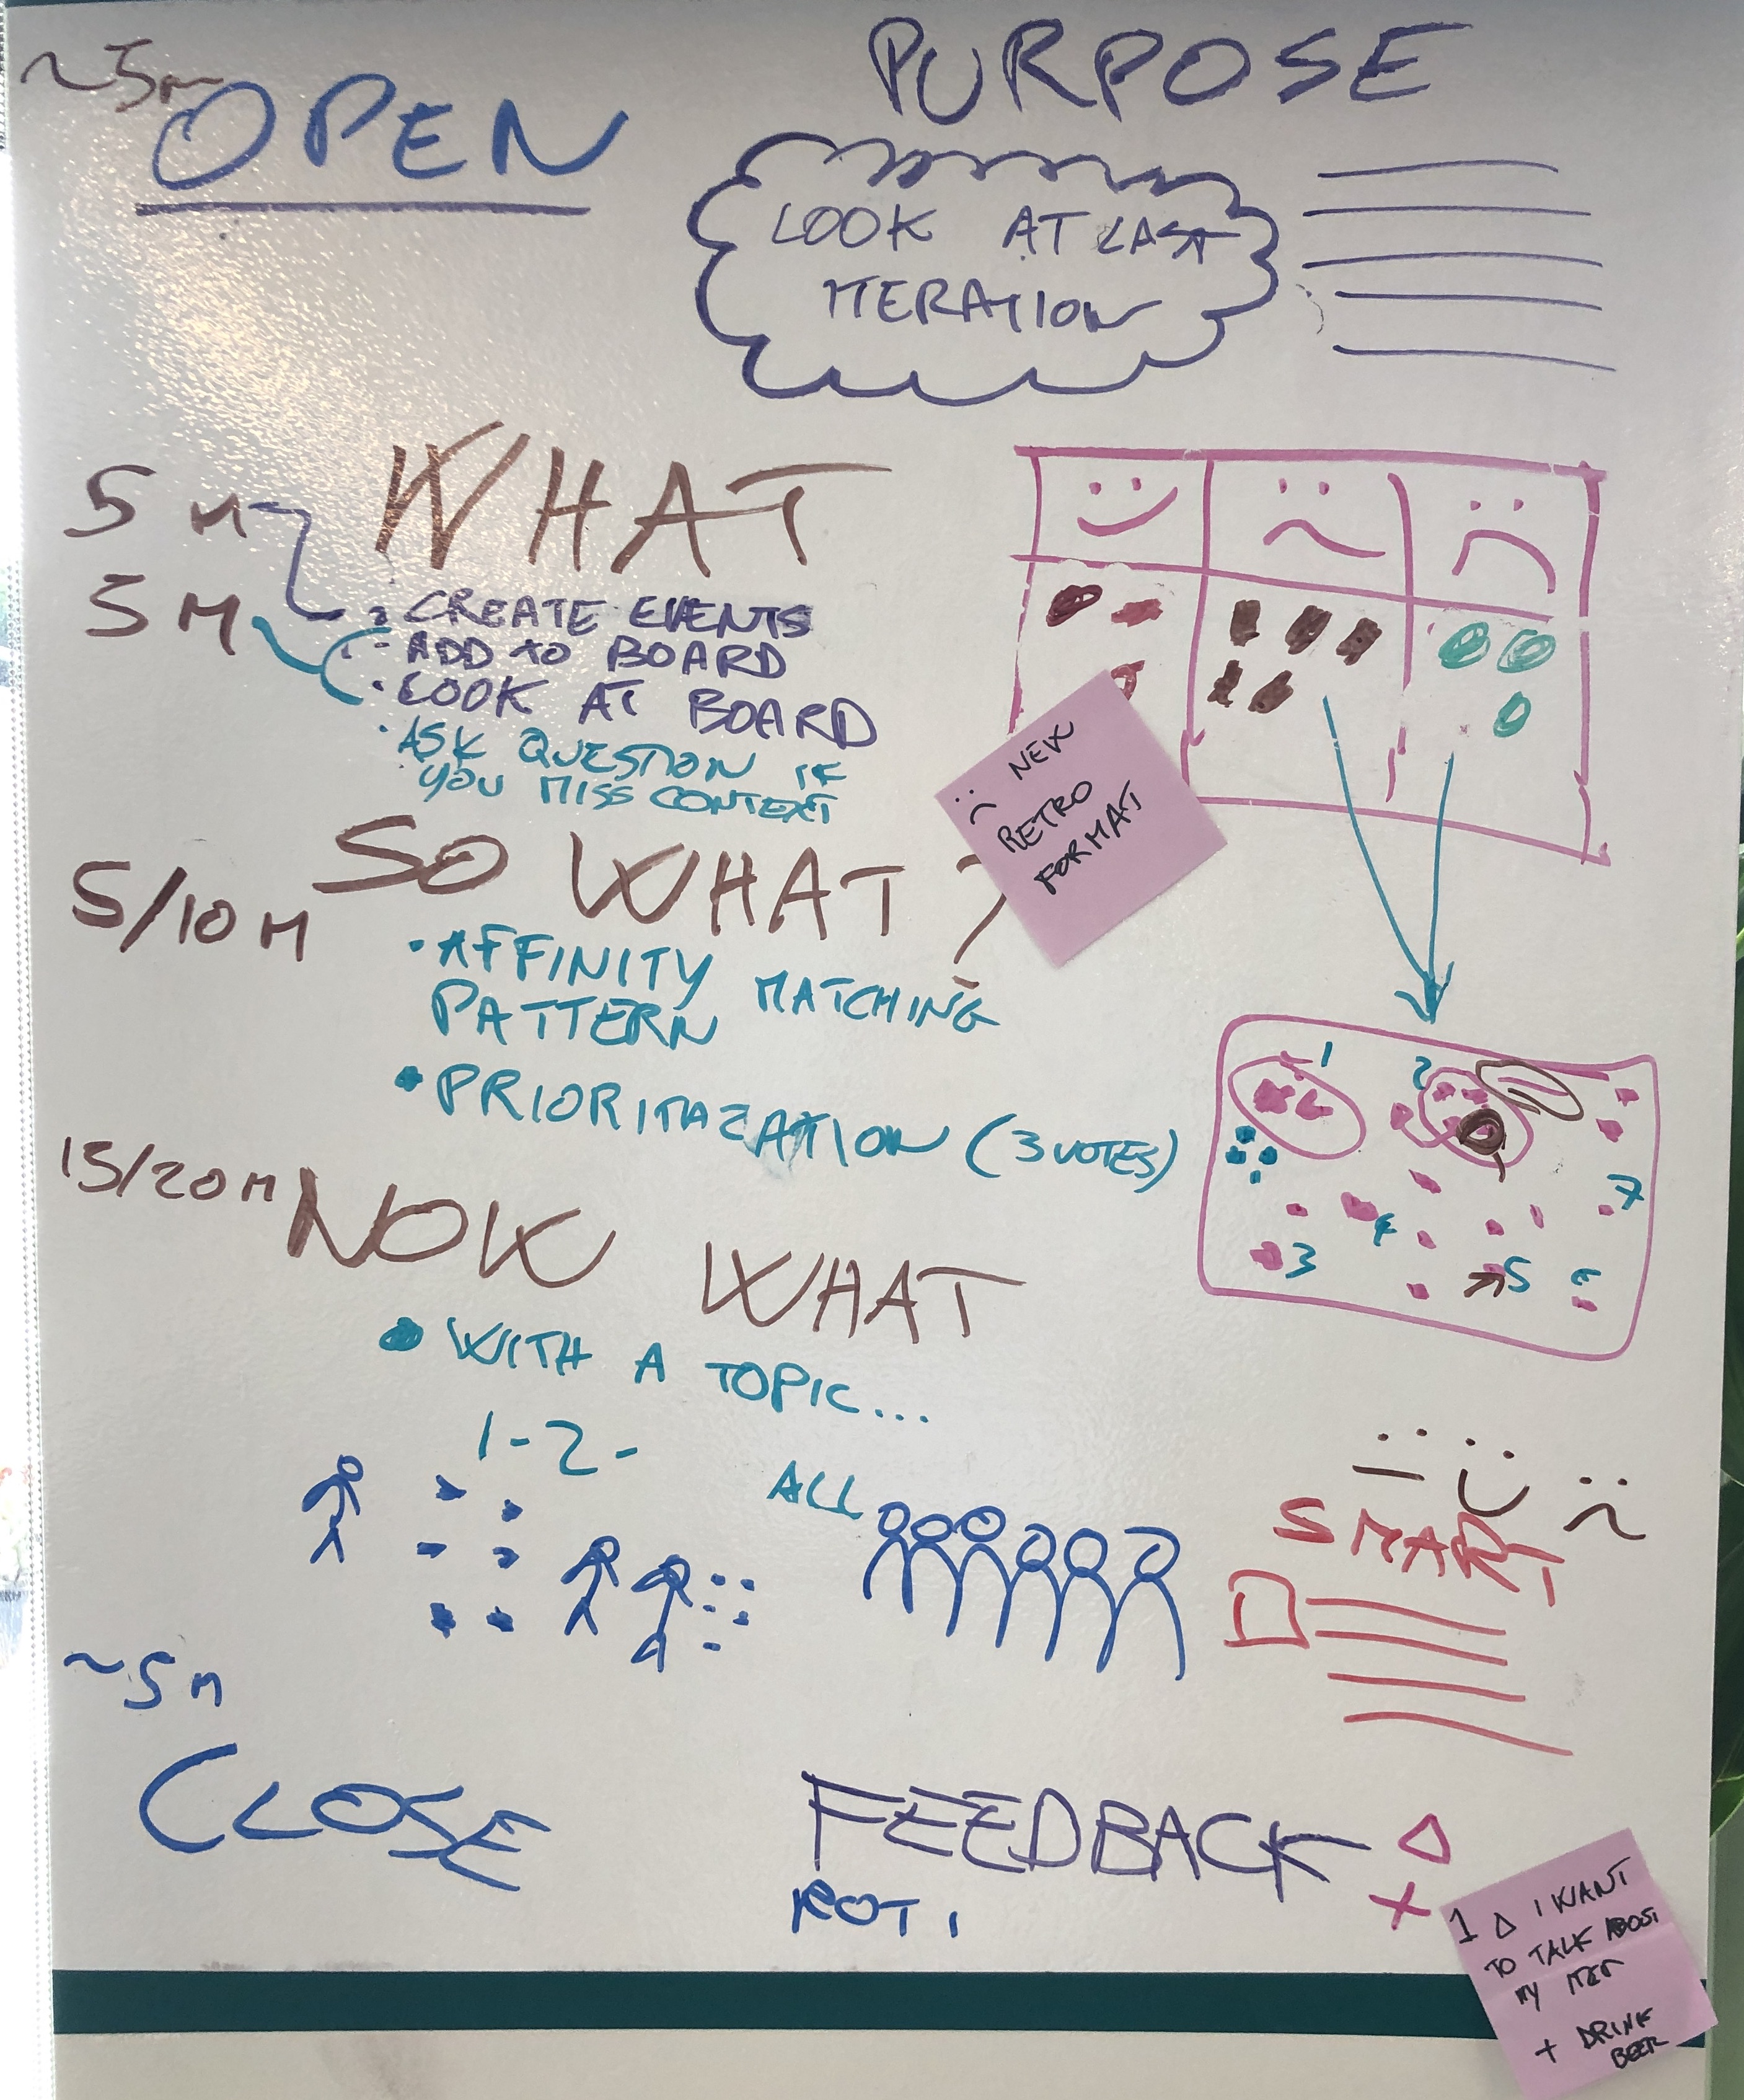 ~5m
OPEN
PURPOSE
LOOK AT LAST
ITERATION
5 M
5 M
WHAT
CREATE EVENTS
- ADD to BOARD
· LOOK AT BOARD
· ASK QUESTION IF
YOU MISS CONTEXT
NEW
RETRO
FORMAT
5/10 M
SO WHAT ?
· AFFINITY MATCHING
PATTERN
• PRIORITAZATION (3 VOTES)
1
2
3
4
5
6
7
15/20 M
NOW WHAT
• WITH A TOPIC...
1-2-
ALL
SMART
~5 M
CLOSE
FEEDBACK Δ
+
ROTI
1 Δ I WANT
TO TALK ABOUT
MY ITEM
+ DRINK
BEER